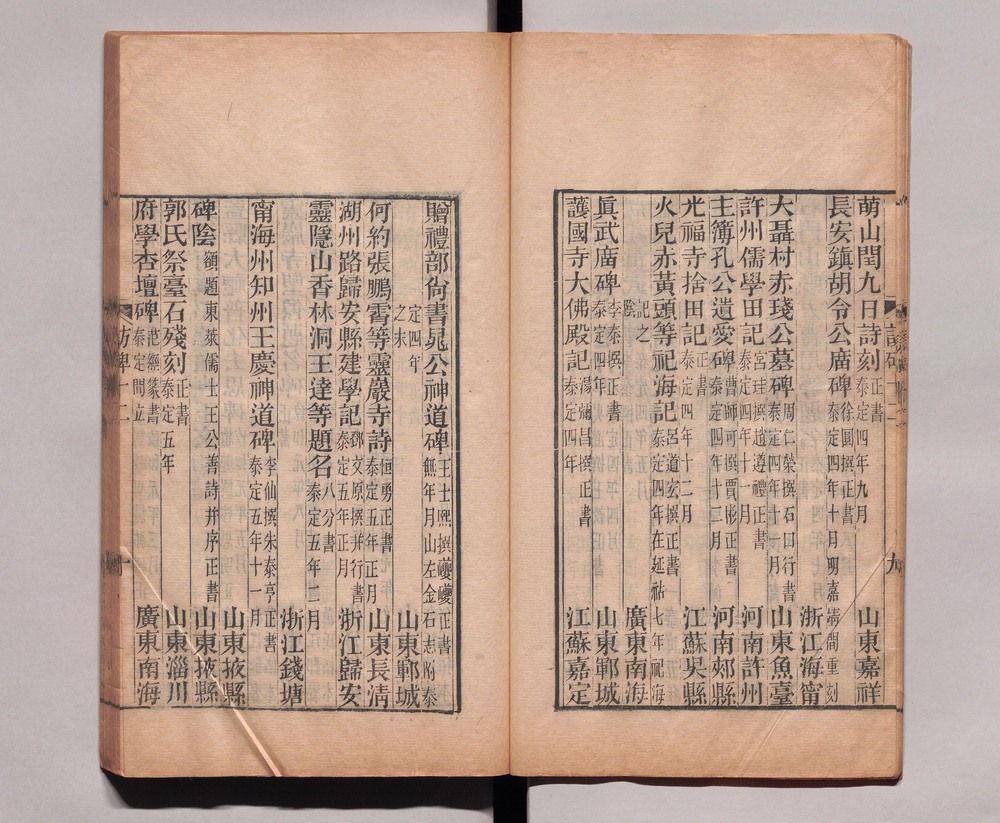 萌山閏九日詩刻 正書 泰定四年九月 山東嘉祥
長安鎮胡令公廟碑 徐圓撰正書 泰定四年十月明嘉靖間重刻
浙江海甯
大聶村赤琖公墓碑 周仁榮撰石口行書 泰定四年十一月 山東魚臺
許州儒學田記 宮珪撰趙遵禮正書 泰定四年十一月 河南許州
主簿孔公遺愛碑 曹師可撰賈彬正書 泰定四年十二月 河南郟縣
光福寺捨田記 正書 泰定四年十二月 江蘇吳縣
火兒赤黃頭等祀海記 呂道玄撰正書 泰定四年在延祐七年祀海
記之陰 廣東南海
眞武廟碑 李泰撰正書 泰定四年 山東鄆城
護國寺大佛殿記 湯彌昌撰正書 泰定四年 江蘇嘉定
贈禮部尙書晁公神道碑 王士熙撰巙巙正書 無年月山左金石志附泰
定四年之末 山東鄆城
何約張鵬霄等靈巖寺詩 恒勇正書 泰定五年正月 山東長淸
湖州路歸安縣建學記 鄧文原撰并行書 泰定五年正月 浙江歸安
靈隱山香林洞王達等題名 八分書 泰定五年二月
浙江錢塘
甯海州知州王慶神道碑 李仙撰朱泰亨正書 泰定五年十一月
山東掖縣
碑陰 額題東萊儒士王公善詩并序正書 山東掖縣
郭氏祭臺石殘刻 正書 泰定五年 山東淄川
府學杏壇碑 范經篆書 泰定間立 廣東南海
訪碑十二
九
訪碑十二
十